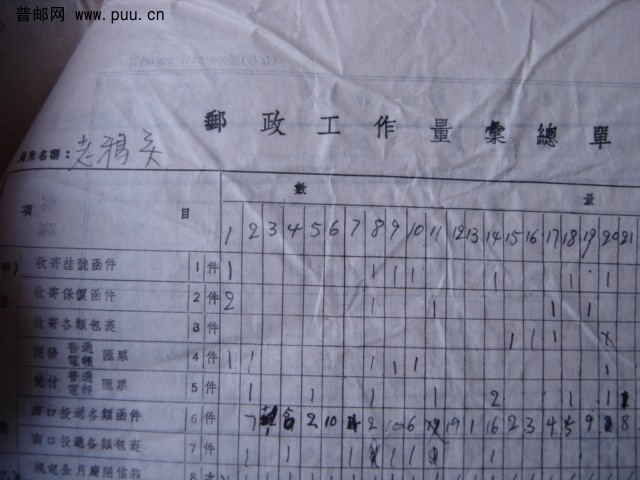 普邮网 www.puu.cn
郵政工作量彙總單
局所名稱：老鴉
數 量
項 目 1 2 3 4 5 6 7 8 9 10 11 12 13 14 15 16 17 18 19 20 21
收寄挂號函件 1 件 1 1 1 1 1 1 1
收寄保價函件 2 件 2 1 1 1 1
收寄各類包裹 3 件 1 1 1
開發 普通 電報 匯票 4 件 1 1 1 1 1
兌付 普通 電報 匯票 5 件 1 1 1 1 2 1 1
窗口投遞各類函件 6 件 7 2 10 2 10 6 19 1 16 2 3 4 9 8
窗口投遞各類包裹 7 件 1 1 1 1 1 1
規定全月應開信箱 8 次